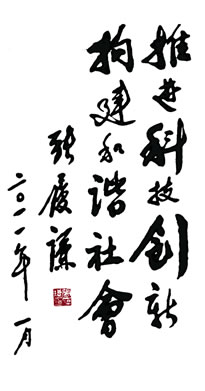 推进科技创新
构建和谐社會
张履谦
二〇一一年
一月